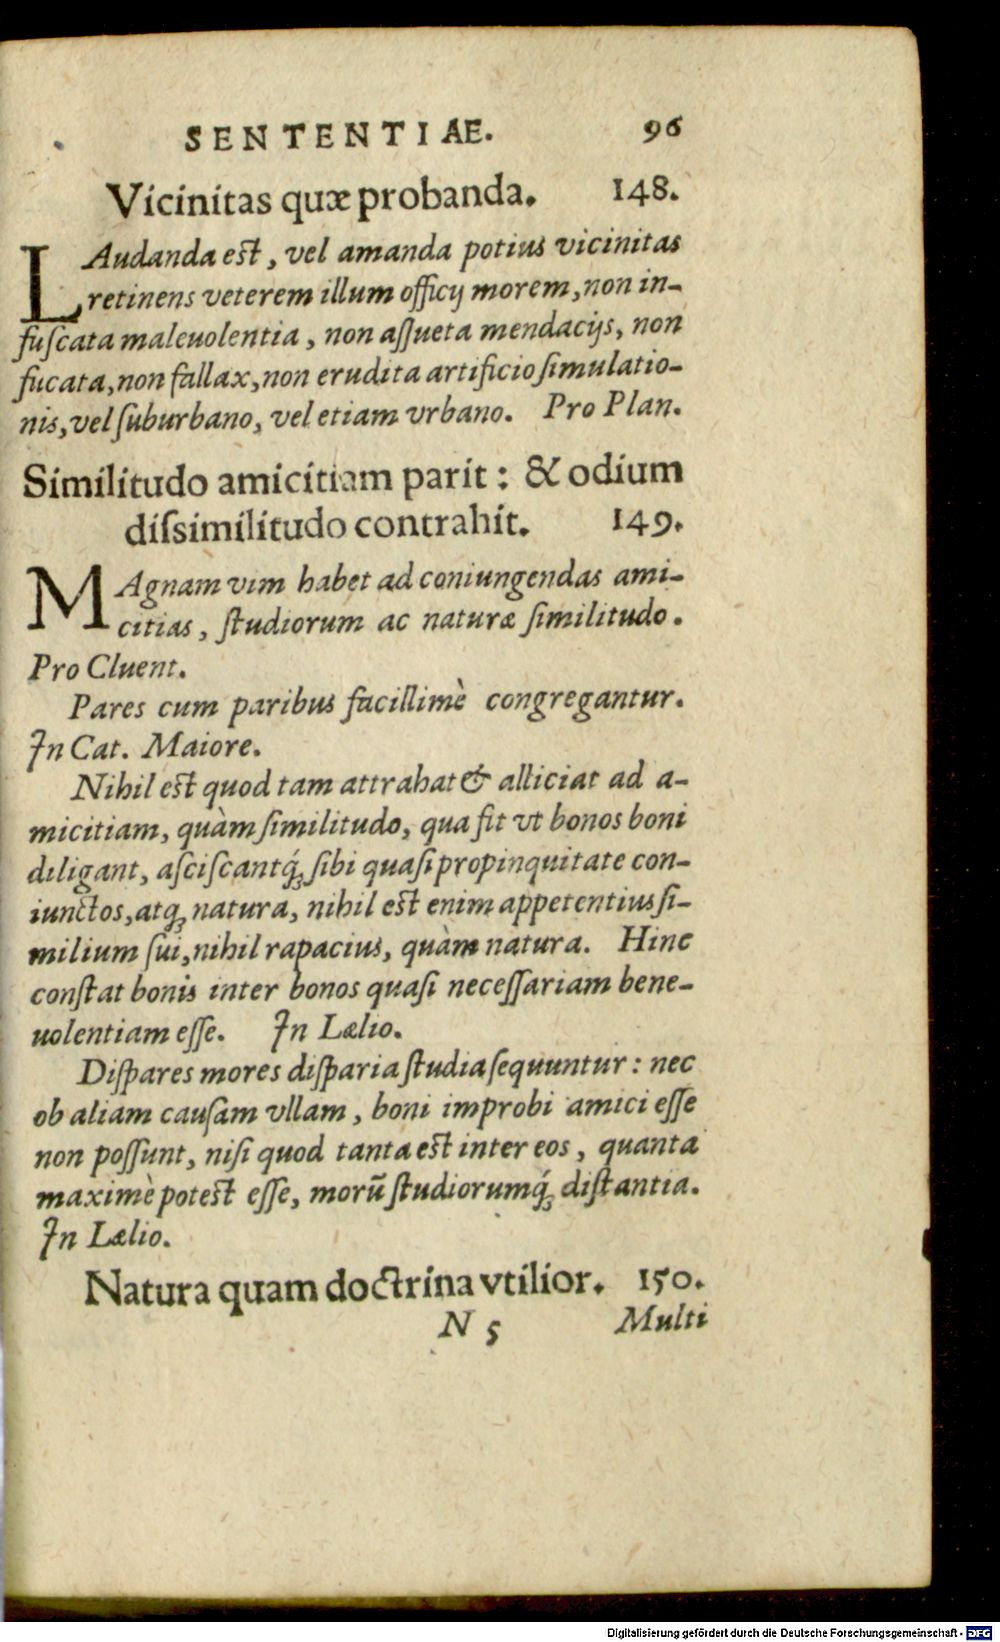 SENTENTIAE. 96
Vicinitas quæ probanda. 148.
LAudanda eſt, vel amanda potius vicinitas
retinens veterem illum officij morem, non in-
fuſcata maleuolentia, non aſſueta mendacijs, non
fucata, non fallax, non erudita artificio ſimulatio-
nis, vel ſuburbano, vel etiam vrbano. Pro Plan.
Similitudo amicitiam parit: & odium
diſsimilitudo contrahit. 149.
MAgnam vim habet ad coniungendas ami-
citias, ſtudiorum ac naturæ ſimilitudo.
Pro Cluent.
Pares cum paribus facillimè congregantur.
In Cat. Maiore.
Nihil eſt quod tam attrahat & alliciat ad a-
micitiam, quàm ſimilitudo, qua fit vt bonos boni
diligant, aſciſcantq́; ſibi quaſi propinquitate con-
iunctos, atq; natura, nihil eſt enim appetentius ſi-
milium ſui, nihil rapacius, quàm natura. Hinc
conſtat bonis inter bonos quaſi neceſſariam bene-
uolentiam eſſe. In Lælio.
Diſpares mores diſparia ſtudia ſequuntur: nec
ob aliam cauſam vllam, boni improbi amici eſſe
non poſſunt, niſi quod tanta eſt inter eos, quanta
maximè poteſt eſſe, morũ ſtudiorumq́; diſtantia.
In Lælio.
Natura quam doctrina vtilior. 150.
N 5 Multi
Digitalisierung gefördert durch die Deutsche Forschungsgemeinschaft - DFG